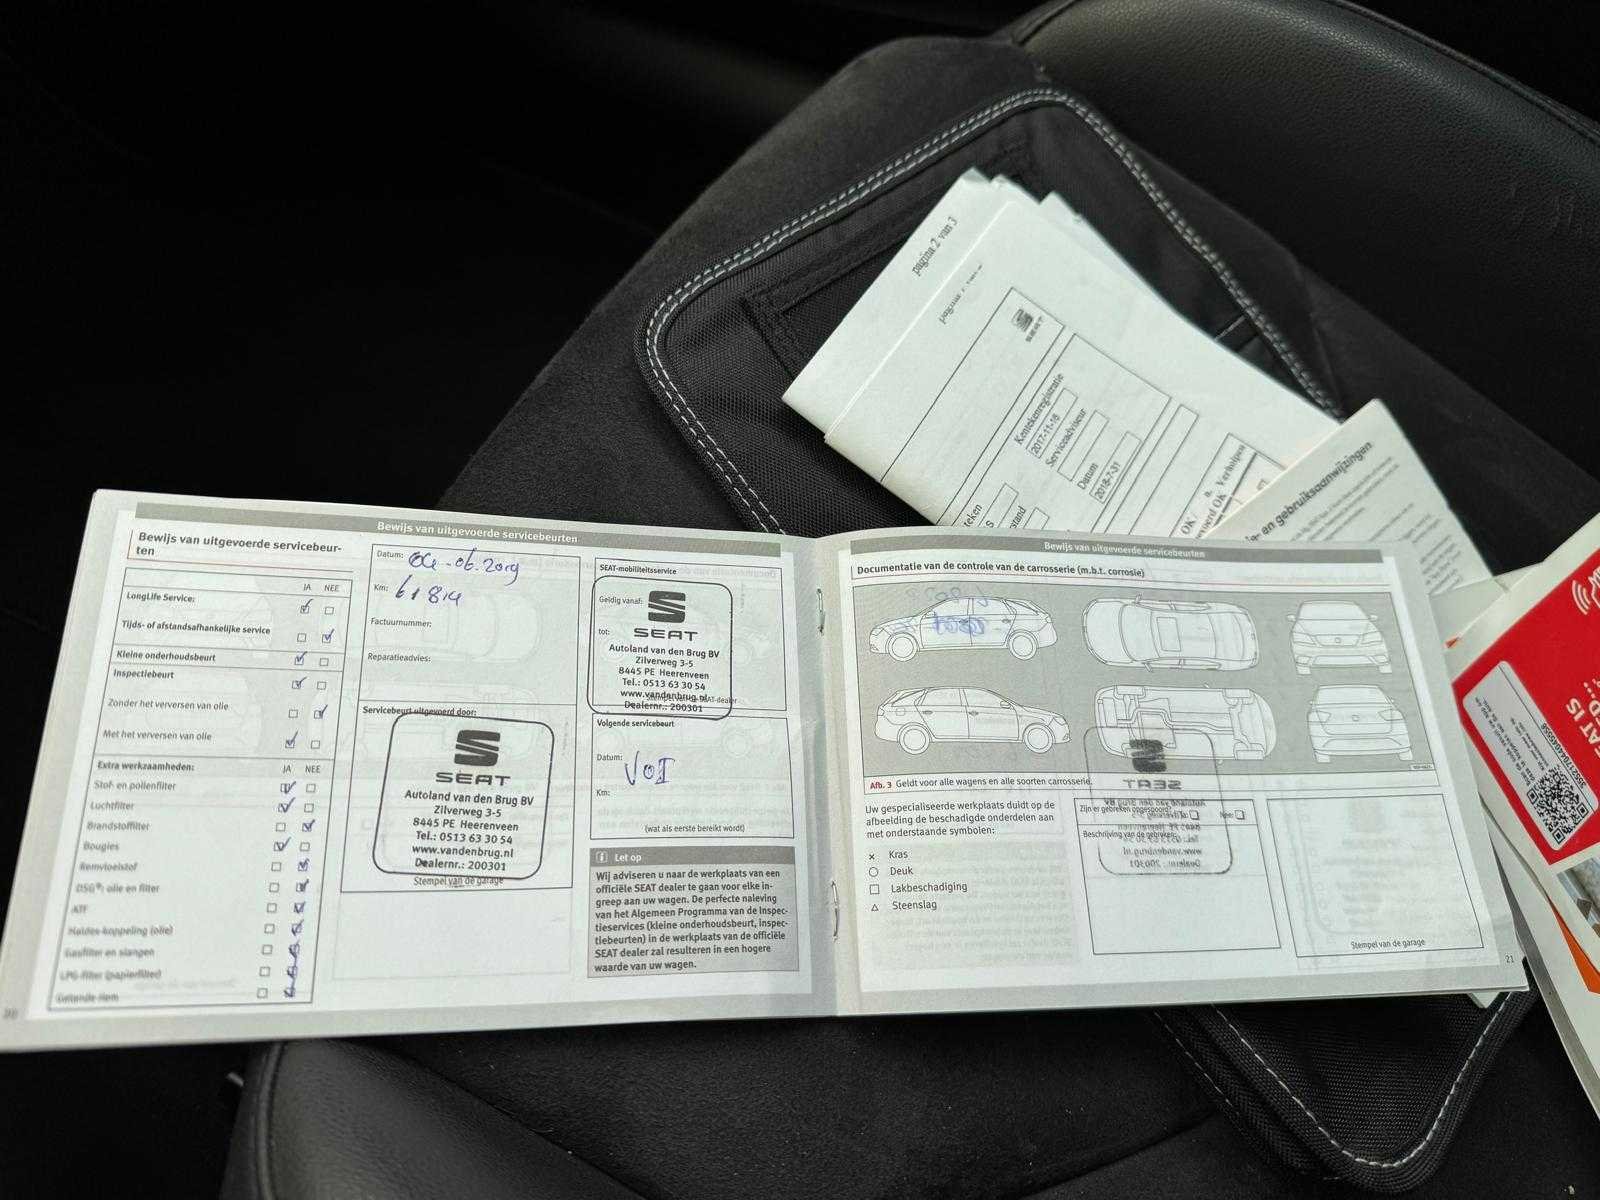 Bewijs van uitgevoerde servicebeurten
Bewijs van uitgevoerde servicebeur-
ten
JA NEE
LongLife Service:
Tijds- of afstandsafhankelijke service
Kleine onderhoudsbeurt
Inspectiebeurt
Zonder het verversen van olie
Met het verversen van olie
Extra werkzaamheden: JA NEE
Stof- en pollenfilter
Luchtfilter
Brandstoffilter
Bougies
Remvloeistof
DSG®: olie en filter
ATF
Haldex-koppeling (olie)
Gasfilter en slangen
LPG-filter (papierfilter)
Getande riem
20
Datum: 04-06-2019
Km: 61814
Factuurnummer:
Reparatieadvies:
Servicebeurt uitgevoerd door:
SEAT
Autoland van den Brug BV
Zilverweg 3-5
8445 PE Heerenveen
Tel.: 0513 63 30 54
www.vandenbrug.nl
Dealernr.: 200301
Stempel van de garage
SEAT-mobiliteitsservice
Geldig vanaf:
tot:
SEAT
Autoland van den Brug BV
Zilverweg 3-5
8445 PE Heerenveen
Tel.: 0513 63 30 54
www.vandenbrug.nl
Dealernr.: 200301
Volgende servicebeurt
Datum: VOI
Km:
(wat als eerste bereikt wordt)
i Let op
Wij adviseren u naar de werkplaats van een
officiële SEAT dealer te gaan voor elke in-
greep aan uw wagen. De perfecte naleving
van het Algemeen Programma van de Inspec-
tieservices (kleine onderhoudsbeurt, inspec-
tiebeurten) in de werkplaats van de officiële
SEAT dealer zal resulteren in een hogere
waarde van uw wagen.
Bewijs van uitgevoerde servicebeurten
Documentatie van de controle van de carrosserie (m.b.t. corrosie)
Afb. 3 Geldt voor alle wagens en alle soorten carrosserie.
Uw gespecialiseerde werkplaats duidt op de
afbeelding de beschadigde onderdelen aan
met onderstaande symbolen:
× Kras
○ Deuk
□ Lakbeschadiging
△ Steenslag
Zijn er gebreken opgespoord?
Ja: Nee:
Beschrijving van de gebreken:
Stempel van de garage
21
pagina 2 van 3
SEAT
Kentekenregistratie
2017-11-16
Serviceadviseur
Datum
2018-7-31
OK/
a. Verholpen
- en gebruiksaanwijzingen